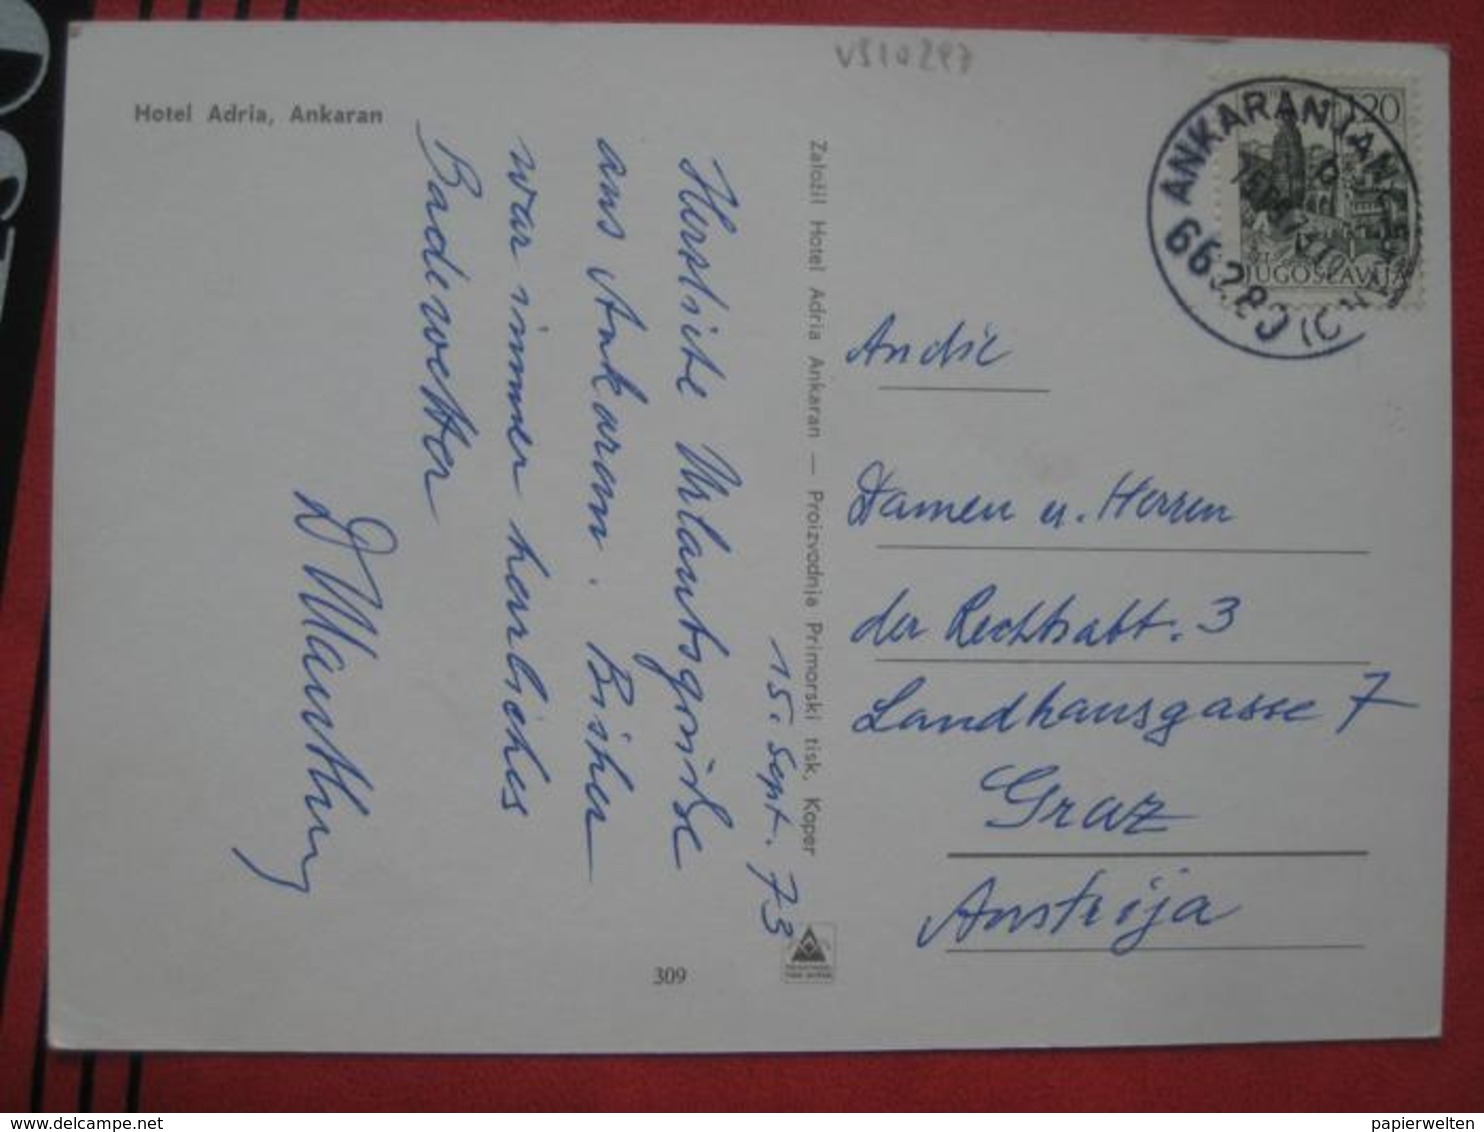 V510247
Hotel Adria, Ankaran
15. Sept. 73
Herzliche Urlaubsgrüße
aus Ankaran. Bisher
war immer herrliches
Badewetter
Založil Hotel Adria Ankaran — Proizvodnja Primorski tisk, Koper
309
1,20
JUGOSLAVIJA
ANKARAN
66280
Damen u. Herren
der Rechtsabt. 3
Landhausgasse 7
Graz
Austrija
papierwelten